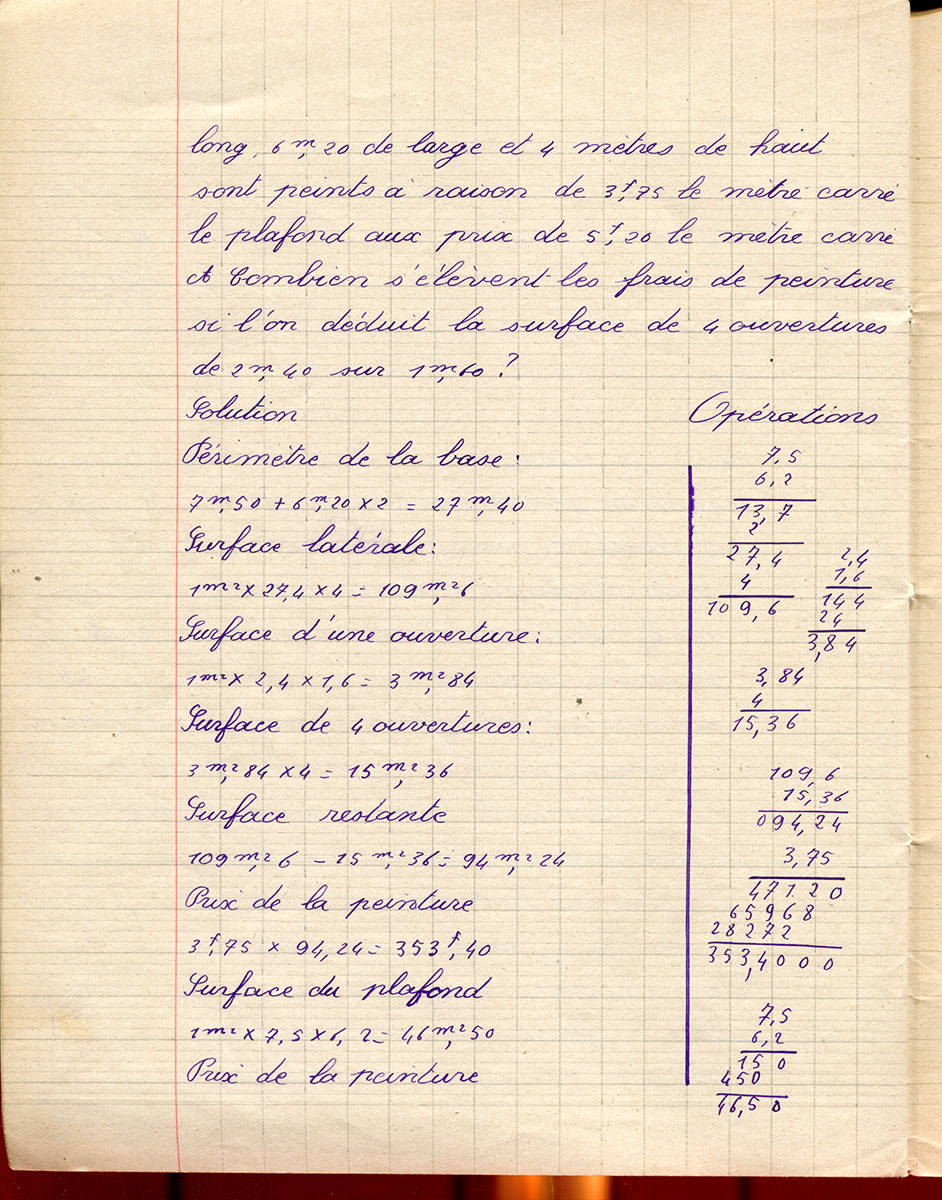 long, 6 m, 20 de large et 4 mètres de haut
sont peints à raison de 3f,75 le mètre carré
le plafond aux prix de 5f,20 le mètre carré
A Combien s'élèvent les frais de peinture
si l'on déduit la surface de 4 ouvertures
de 2m,40 sur 1m,60 ?
Solution
Périmètre de la base :
7m,50 + 6m,20 × 2 = 27m,40
Surface latérale :
1m² × 27,4 × 4 = 109m²,6
Surface d'une ouverture :
1m² × 2,4 × 1,6 = 3m²,84
Surface de 4 ouvertures :
3m²,84 × 4 = 15m²,36
Surface restante
109m²,6 – 15m²,36 = 94m²,24
Prix de la peinture
3f,75 × 94,24 = 353f,40
Surface du plafond
1m² × 7,5 × 6,2 = 46m²,50
Prix de la peinture
Opérations
7,5
6,2
13,7
2
27,4
4
109,6
2,4
1,6
144
24
3,84
3,84
4
15,36
109,6
15,36
094,24
3,75
47120
65968
28272
353,4000
7,5
6,2
150
450
46,50